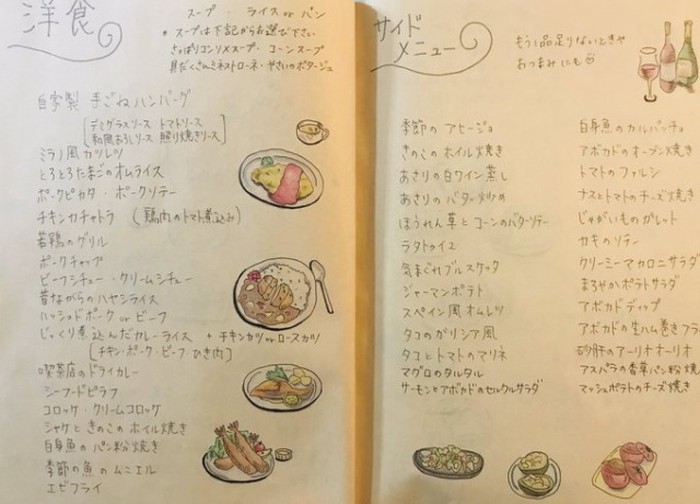 洋食
スープ・ライス or パン
* スープは下記からお選び下さい
さっぱりコンソメスープ・コーンスープ
具だくさんミネストローネ・やさいのポタージュ
自家製 手ごねハンバーグ
[デミグラスソース トマトソース
和風おろしソース 照り焼きソース]
ミラノ風カツレツ
とろとろたまごのオムライス
ポークピカタ・ポークソテー
チキンカチャトラ (鶏肉のトマト煮込み)
若鶏のグリル
ポークチャップ
ビーフシチュー・クリームシチュー
昔ながらのハヤシライス
ハッシュドポーク or ビーフ
じっくり煮込んだカレーライス + チキンカツ or ロースカツ
[チキン・ポーク・ビーフ・ひき肉]
喫茶店のドライカレー
シーフードピラフ
コロッケ・クリームコロッケ
シャケときのこのホイル焼き
白身魚のパン粉焼き
季節の魚のムニエル
エビフライ
サイドメニュー
もう1品足りないときや
おつまみにも
季節のアヒージョ
きのこのホイル焼き
あさりの白ワイン蒸し
あさりのバター炒め
ほうれん草とコーンのバターソテー
ラタトゥイユ
気まぐれブルスケッタ
ジャーマンポテト
スペイン風オムレツ
タコのガリシア風
タコとトマトのマリネ
マグロのタルタル
サーモンとアボカドのセルクルサラダ
白身魚のカルパッチョ
アボカドのオーブン焼き
トマトのファルシ
ナスとトマトのチーズ焼き
じゃがいものガレット
カキのソテー
クリーミーマカロニサラダ
まろやかポテトサラダ
アボカドディップ
アボカドの生ハム巻きフラ
砂肝のアーリオオーリオ
アスパラの香草パン粉焼
マッシュポテトのチーズ焼き